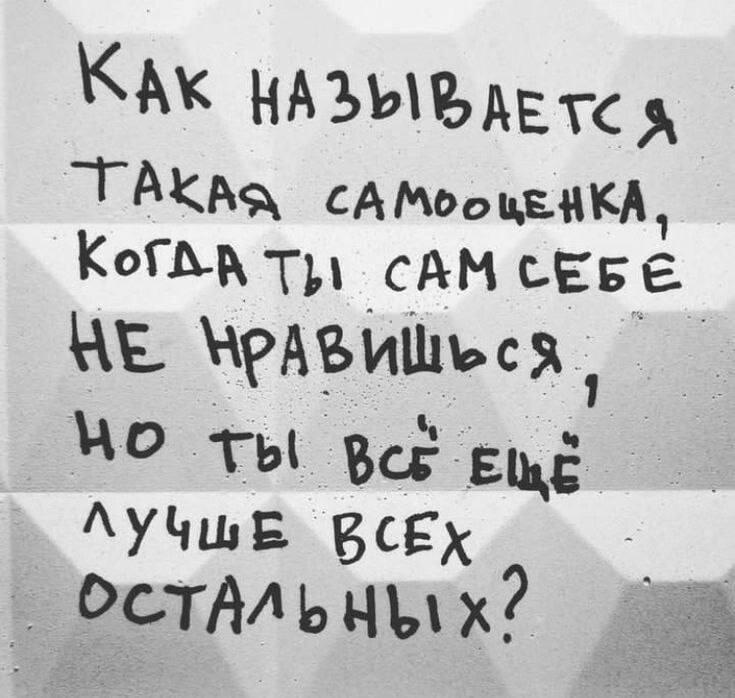 КАК НАЗЫВАЕТСЯ
ТАКАЯ САМООЦЕНКА,
КОГДА ТЫ САМ СЕБЕ
НЕ НРАВИШЬСЯ,
НО ТЫ ВСЁ ЕЩЁ
ЛУЧШЕ ВСЕХ
ОСТАЛЬНЫХ?